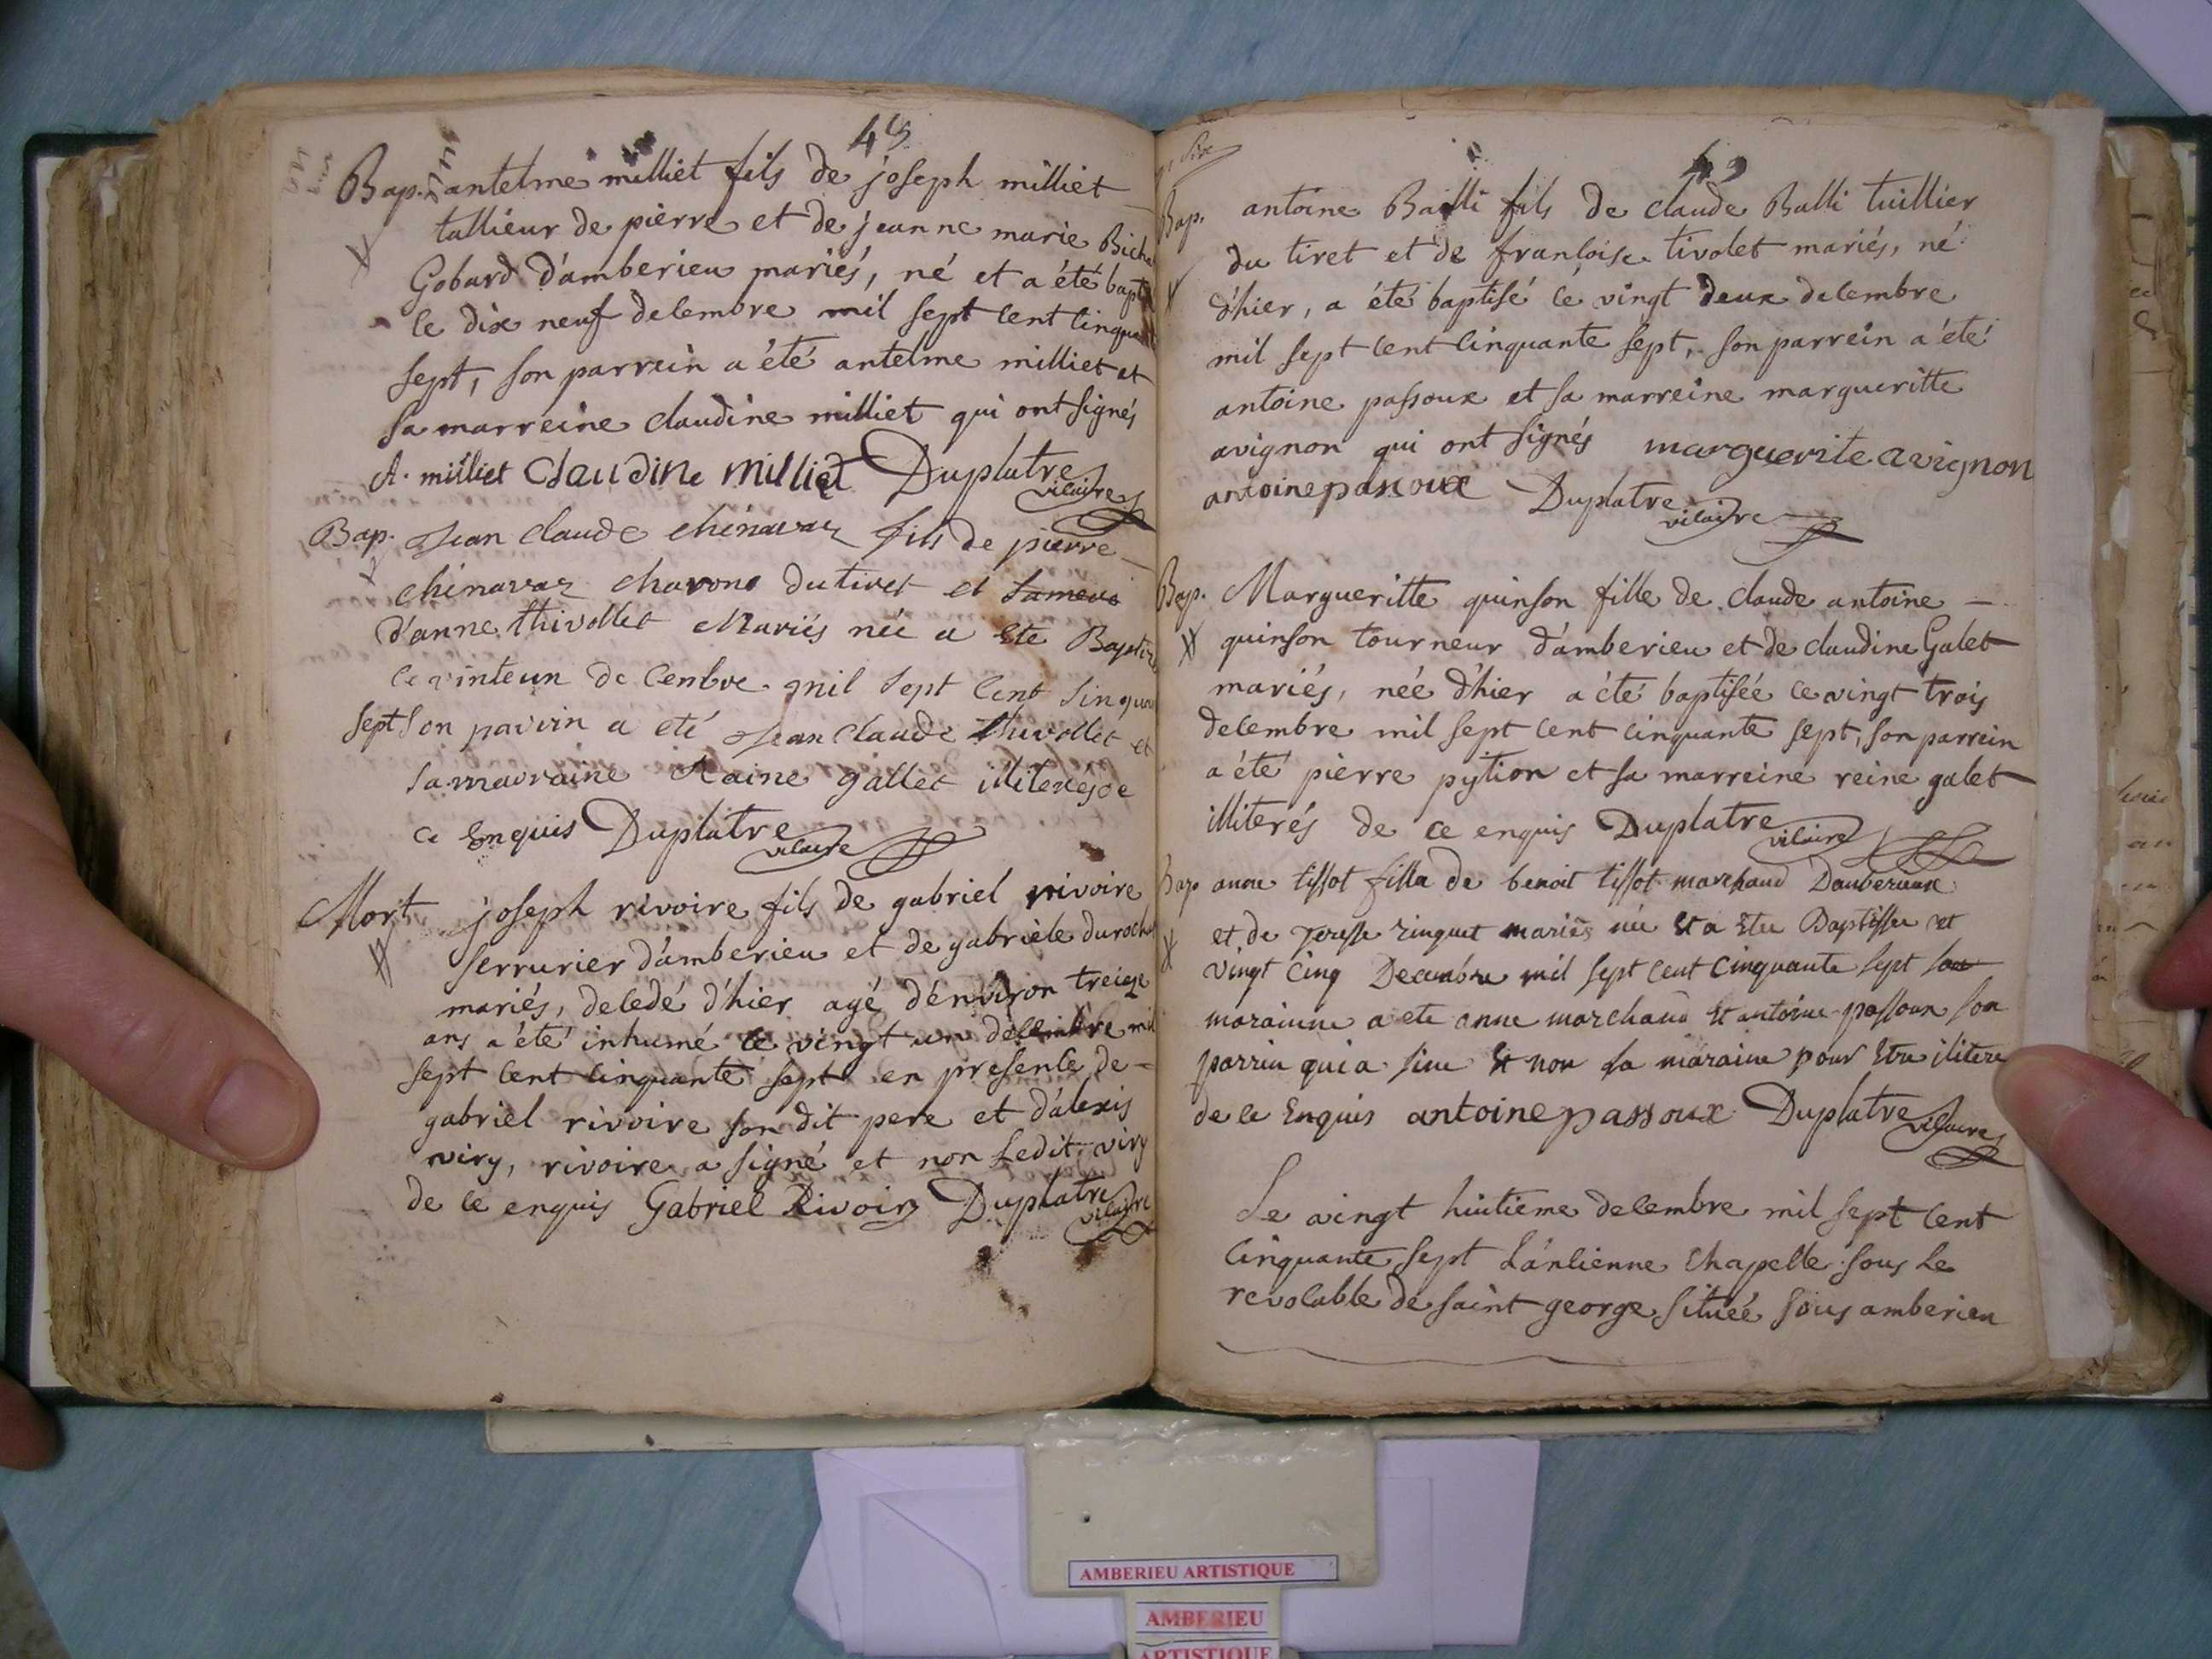 48
Bap. antelme milliet fils de joseph milliet
tallieur de pierre et de jeanne marie Biche
Gobard d'amberieu mariés, né et a été bapti
le dix neuf decembre mil sept cent cinquan
sept, son parrein a été antelme milliet et
sa marreine claudine milliet qui ont signés
A. milliet Claudine Milliet Duplatre
vicaire
Bap. Jean claude chenavaz fils de pierre
chenavaz charons du tiret et
d'anne thivollet Mariés née a ete Baptiz
le vinteun decenbre mil sept cent sinqua
sept son parrin a eté Jean Claude thivollet et
sa marraine Raine gallet illiterés de
ce enquis Duplatre
vicaire
Mort joseph rivoire fils de gabriel rivoire
serrurier d'amberieu et de gabriele duroch
mariés, decedé d'hier agé d'environ treize
ans a été inhumé le vingt un decembre mil
sept cent cinquante sept en presence de
gabriel rivoire son dit pere et d'alexis
viry, rivoire a signé et non ledit viry
de ce enquis Gabriel Rivoire Duplatre
vicaire
49
Bap. antoine Bailli fils de claude Balli tuillier
du tiret et de francoise tivolet mariés, né
d'hier, a été baptisé le vingt deux decembre
mil sept cent cinquante sept, son parrein a été
antoine passoux et sa marreine margueritte
avignon qui ont signés marguerite avignon
antoine passoux Duplatre
vicaire
Bap. Margueritte quinson fille de claude antoine
quinson tourneur d'amberieu et de claudine Galet
mariés, née d'hier a été baptisée le vingt trois
decembre mil sept cent cinquante sept, son parrein
a été pierre pytion et sa marreine reine galet
illiterés de ce enquis Duplatre
vicaire
Bap anne tissot fille de benoit tissot marchand
et de ringuet mariés née et a Baptissee
vingt cinq Decembre mil sept cent cinquante sept
moraine a ete anne marchand et antoine passoux son
parrin qui a sine et non sa maraine pour Etre ilitere
de ce Enquis antoine passoux Duplatre
vicaire
Le vingt huitieme decembre mil sept cent
cinquante sept l'ancienne chapelle sous le
vocable de saint george située sous amberieu
AMBERIEU ARTISTIQUE
AMBERIEU
ARTISTIQUE